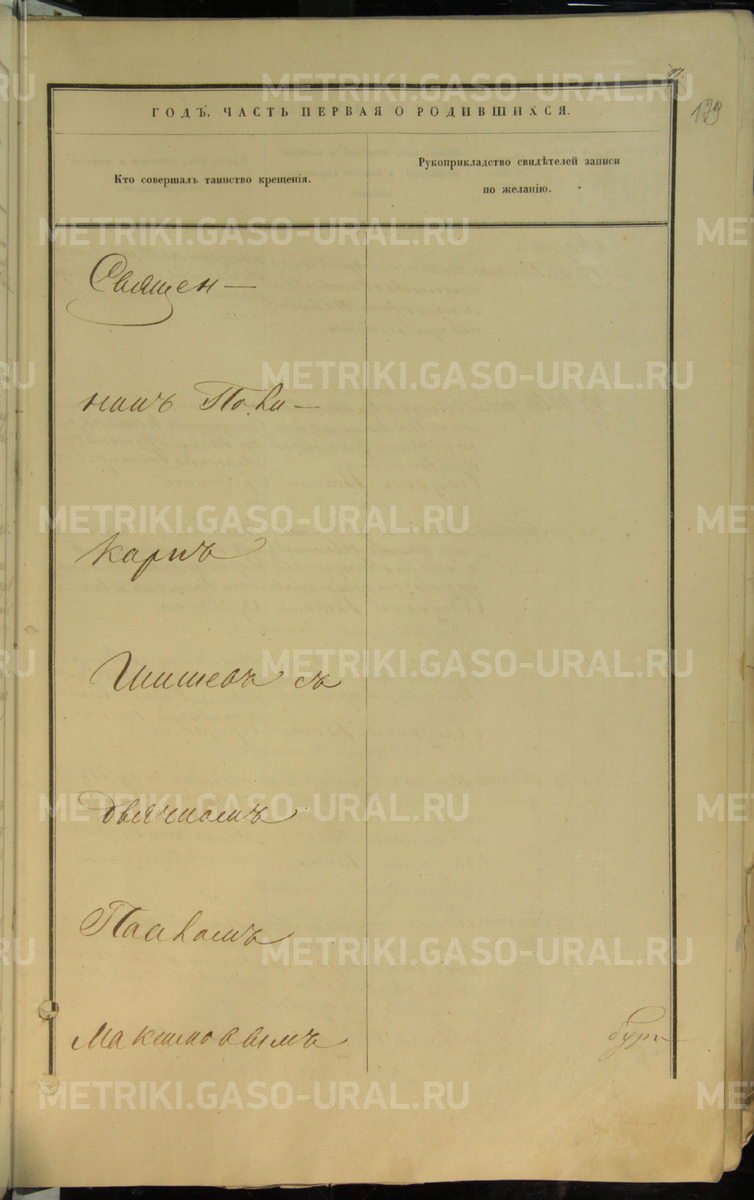 179
ГОДЪ. ЧАСТЬ ПЕРВАЯ О РОДИВШИХСЯ.
Кто совершалъ таинство крещенія.
Рукоприкладство свидѣтелей записи
по желанію.
Священ—
никъ Поли—
карпъ
Шишевъ съ
дьячкомъ
Павломъ
Максимовымъ
METRIKI.GASO-URAL.RU